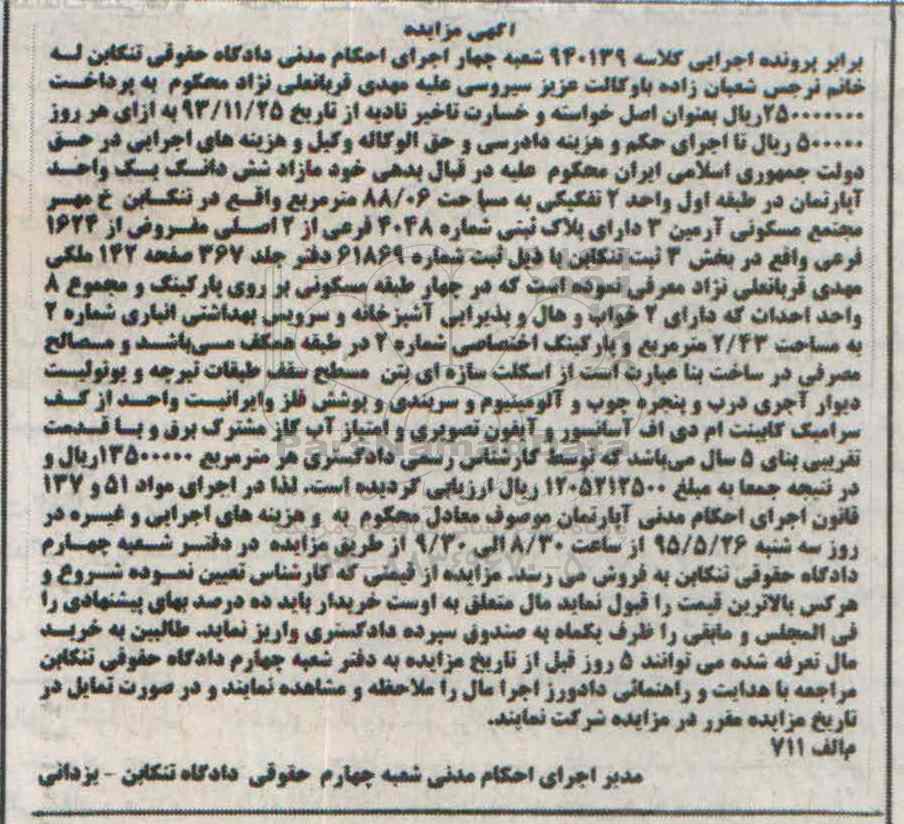 آگهی مزایده
برابر پرونده اجرایی کلاسه ۹۴۰۱۳۹ شعبه چهار اجرای احکام مدنی دادگاه حقوقی تنکابن لـه
خانم نرجس شعبان زاده باوکالت عزیز سیروسی علیه مهدی قربانعلی نژاد محکوم به پرداخت
۲۵۰۰۰۰۰۰۰ریال بعنوان اصل خواسته و خسارت تاخیر تادیه از تاریخ ۹۳/۱۱/۲۵ به ازای هر روز
۵۰۰۰۰۰ ریال تا اجرای حکم و هزینه دادرسی و حق الوکاله وکیل و هزینه های اجرایی در حـق
دولت جمهوری اسلامی ایران محکوم علیه در قبال بدهی خود مازاد شش دانـگ یـک واحـد
آپارتمان در طبقه اول واحد ۲ تفکیکی به مساحت ۸۸/۰۶ مترمربع واقـع در تنکـابن خ مهـر
مجتمع مسکونی آرمین ۳ دارای پلاک ثبتی شماره ۴۰۴۸ فرعی از ۲ اصـلی مفـروض از ۱۶۲۴
فرعی واقع در بخش ۳ ثبت تنکابن با ذیل ثبت شماره ۶۱۸۶۹ دفتر جلد ۳۶۷ صفحه ۱۴۲ ملکی
مهدی قربانعلی نژاد معرفی نموده است که در چهار طبقه مسکونی بر روی پارکینگ و مجموع ۸
واحد احداث که دارای ۲ خواب و هال و پذیرایی آشپزخانه و سرویس بهداشتی انباری شماره ۲
به مساحت ۲/۴۳ مترمربع و پارکینگ اختصاصی شماره ۲ در طبقه همکف مـی‌باشـد و مـصالح
مصرفی در ساخت بنا عبارت است از اسکلت سازه ای بتن مسطح سقف طبقات تیرچه و یونولیت
دیوار آجری درب و پنجره چوب و آلومینیوم و سربندی و پوشش فلز وایرانیـت واحـد از کـف
سرامیک کابینت ام دی اف آسانسور و آیفون تصویری و امتیاز آب گاز مشترک برق و بـا قـدمت
تقریبی بنای ۵ سال می‌باشد که توسط کارشناس رسمی دادگستری هر مترمربع ۱۳۵۰۰۰۰۰ریال و
در نتیجه جمعا به مبلغ ۱۲۰۵۲۱۲۵۰۰ ریال ارزیابی گردیده است. لذا در اجرای مواد ۵۱ و ۱۳۷
قانون اجرای احکام مدنی آپارتمان موصوف معادل محکوم به و هزینه های اجرایی و غیـره در
روز سه شنبه ۹۵/۵/۲۶ از ساعت ۸/۳۰ الی ۹/۳۰ از طریق مزایده در دفتـر شـعبه چهـارم
دادگاه حقوقی تنکابن به فروش می رسد. مزایده از قیمتی که کارشناس تعیین نمـوده شـروع و
هرکس بالاترین قیمت را قبول نماید مال متعلق به اوست خریدار باید ده درصد بهای پیشنهادی را
فی المجلس و مابقی را ظرف یکماه به صندوق سپرده دادگستری واریز نماید. طالبین به خریـد
مال تعرفه شده می توانند ۵ روز قبل از تاریخ مزایده به دفتر شعبه چهارم دادگاه حقوقی تنکابن
مراجعه با هدایت و راهنمائی دادورز اجرا مال را ملاحظه و مشاهده نمایند و در صورت تمایل در
تاریخ مزایده مقرر در مزایده شرکت نمایند.
م‌الف ۷۱۱
مدیر اجرای احکام مدنی شعبه چهارم حقوقی دادگاه تنکابن - یزدانی